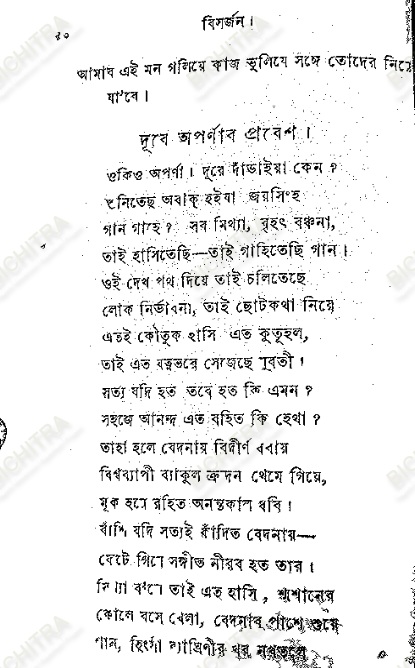 ৫০
বিসর্জন।
আমার এই মন গলিয়ে কাজ ভুলিয়ে সঙ্গে তোদের নিয়ে
যা'রে।
দূরে অপর্ণার প্রবেশ।
ওকিও অপর্ণা। দূরে দাঁড়াইয়া কেন ?
শুনিতেছ অবাক্ হইয়া জয়সিংহ
গান গাহে ? সব মিথ্যা, বৃহৎ বঞ্চনা,
তাই হাসিতেছি—তাই গাহিতেছি গান।
ওই দেখ পথ দিয়ে তাই চলিতেছে
লোক নির্ভাবনা, তাই ছোটকথা নিয়ে
এতই কৌতুক হাসি এত কুতূহল,
তাই এত যত্নভরে সেজেছে যুবতী।
সত্য যদি হত তবে হত কি এমন ?
সহজে আনন্দ এত বহিত কি হেথা ?
তাহা হলে বেদনায় বিদীর্ণ ধরায়
বিশ্বব্যাপী ব্যাকুল ক্রন্দন থেমে গিয়ে,
মূক হয়ে রহিত অনন্তকাল ধরি।
বাঁশি যদি সত্যই কাঁদিত বেদনায়—
ফেটে গিয়ে সঙ্গীত নীরব হত তার।
মিথ্যা বলে তাই এত হাসি, শ্মশানের
কোলে বসে খেলা, বেদনার পাশে শুয়ে
গান, হিংসা ব্যাঘ্রিণীর খর নখতলে
BICHITRA